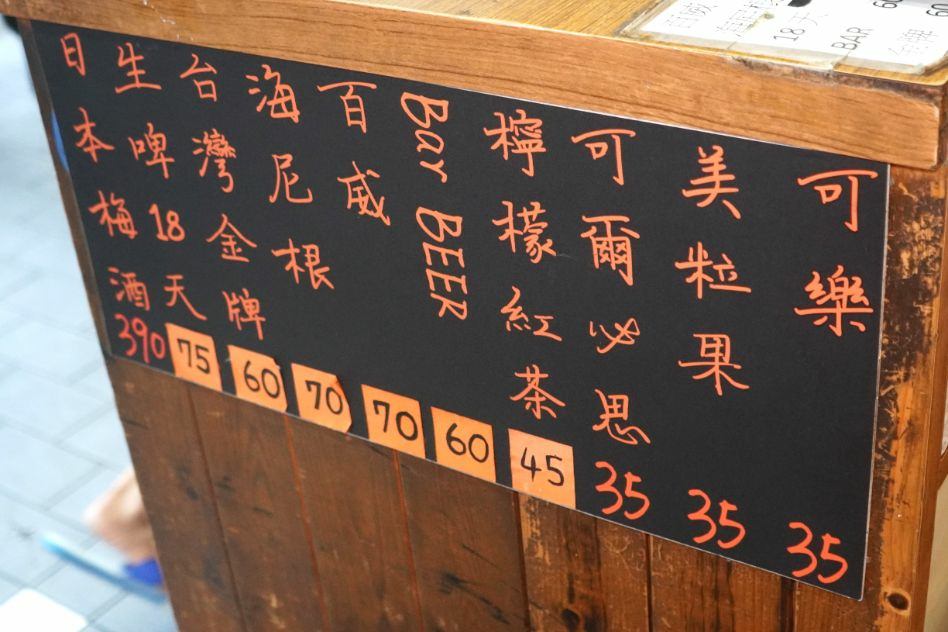 可樂 35
美粒果 35
可爾必思 35
檸檬紅茶 45
Bar BEER 60
百威 70
海尼根 70
台灣金牌 60
生啤18天 75
日本梅酒 390
18天
BAR
60